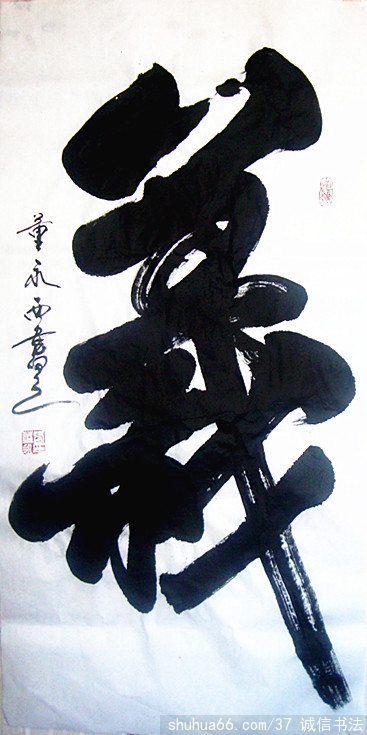 義
董永西書之
shuhua66.com/37 诚信书法